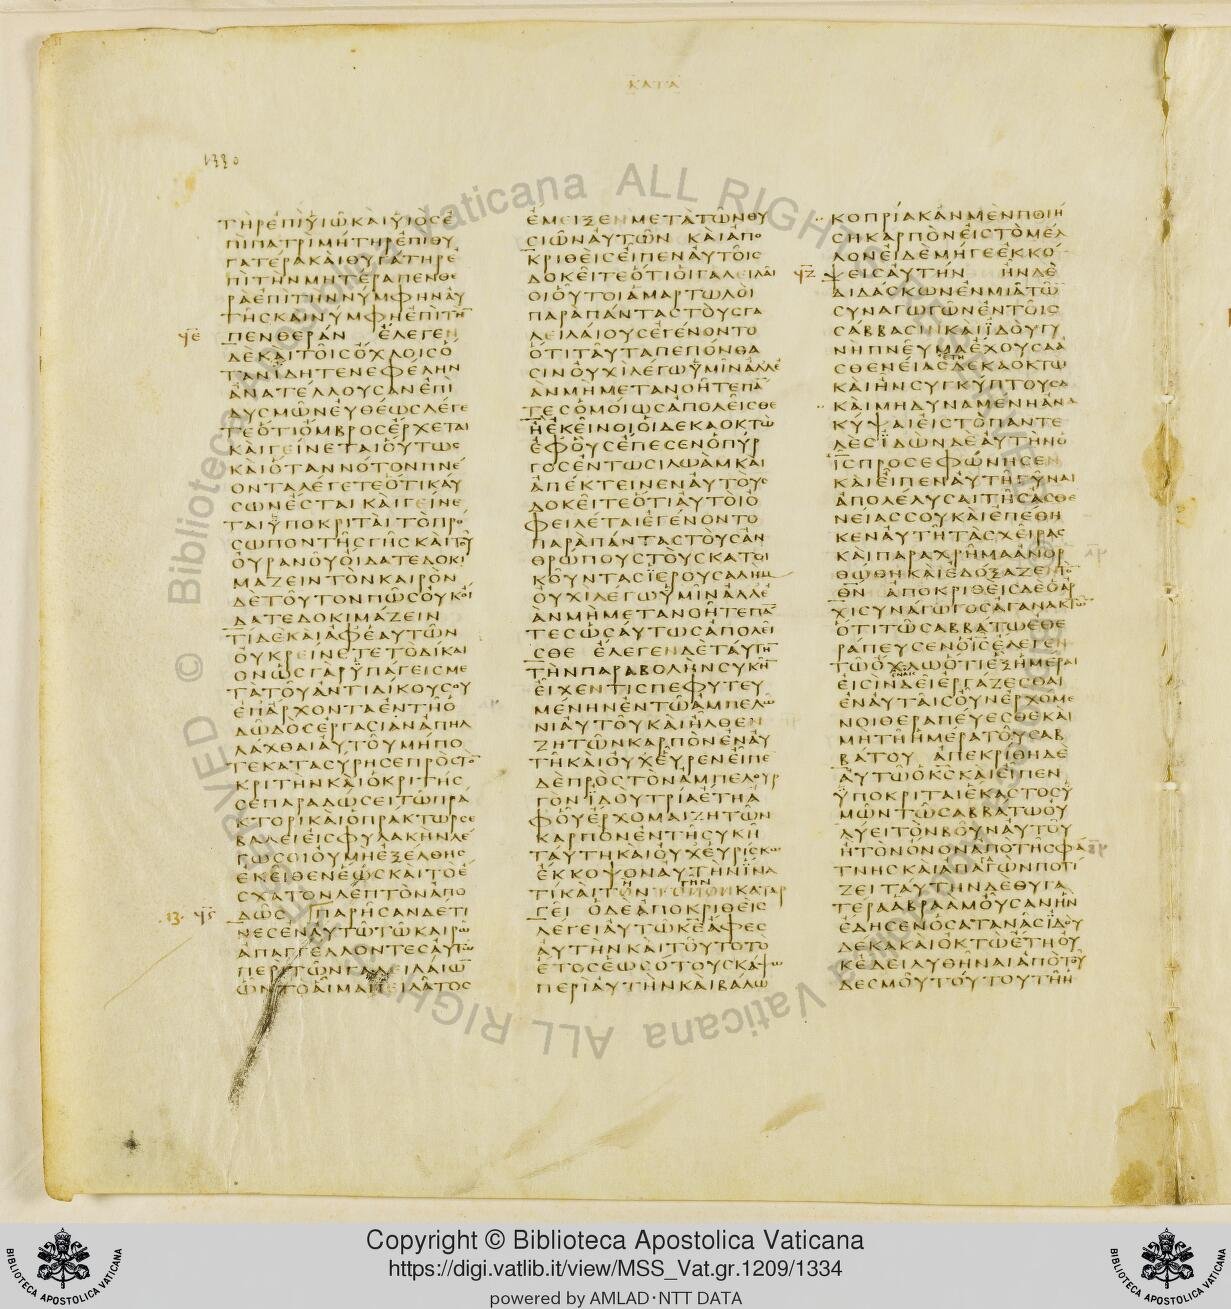 ΚΑΤΑ
1330
ΤΗΡΕΠΙΥΙΩΚΑΙΥΙΟΣΕ
ΠΙΠΑΤΡΙΜΗΤΗΡΕΠΙΘΥ
ΓΑΤΕΡΑΚΑΙΘΥΓΑΤΗΡΕ
ΠΙΤΗΝΜΗΤΕΡΑΠΕΝΘΕ
ΡΑΕΠΙΤΗΝΝΥΜΦΗΝΑΥ
ΤΗΣΚΑΙΝΥΜΦΗΕΠΙΤΗ
ΠΕΝΘΕΡΑΝ ΕΛΕΓΕΝ
ΔΕΚΑΙΤΟΙΣΟΧΛΟΙΣΟ
ΤΑΝΙΔΗΤΕΝΕΦΕΛΗΝ
ΑΝΑΤΕΛΛΟΥΣΑΝΕΠΙ
ΔΥΣΜΩΝΕΥΘΕΩΣΛΕΓΕ
ΤΕΟΤΙΟΜΒΡΟΣΕΡΧΕΤΑΙ
ΚΑΙΓΕΙΝΕΤΑΙΟΥΤΩΣ
ΚΑΙΟΤΑΝΝΟΤΟΝΠΝΕ
ΟΝΤΑΛΕΓΕΤΕΟΤΙΚΑΥ
ΣΩΝΕΣΤΑΙΚΑΙΓΕΙΝΕ
ΤΑΙΥΠΟΚΡΙΤΑΙΤΟΠΡΟ
ΣΩΠΟΝΤΗΣΓΗΣΚΑΙΤΟΥ
ΟΥΡΑΝΟΥΟΙΔΑΤΕΔΟΚΙ
ΜΑΖΕΙΝΤΟΝΚΑΙΡΟΝ
ΔΕΤΟΥΤΟΝΠΩΣΟΥΚΟΙ
ΔΑΤΕΔΟΚΙΜΑΖΕΙΝ
ΤΙΔΕΚΑΙΑΦΕΑΥΤΩΝ
ΟΥΚΡΕΙΝΕΤΕΤΟΔΙΚΑΙ
ΟΝΩΣΓΑΡΫΠΑΓΕΙΣΜΕ
ΤΑΤΟΥΑΝΤΙΔΙΚΟΥΣΟΥ
ΕΠΑΡΧΟΝΤΑΕΝΤΗΟ
ΔΩΔΟΣΕΡΓΑΣΙΑΝΑΠΗΛ
ΛΑΧΘΑΙΑΥΤΟΥΜΗΠΟ
ΤΕΚΑΤΑΣΥΡΗΣΕΠΡΟΣΤΟ
ΚΡΙΤΗΝΚΑΙΟΚΡΙΤΗΣ
ΣΕΠΑΡΑΔΩΣΕΙΤΩΠΡΑ
ΚΤΟΡΙΚΑΙΟΠΡΑΚΤΩΡΣΕ
ΒΑΛΕΙΕΙΣΦΥΛΑΚΗΝΛΕ
ΓΩΣΟΙΟΥΜΗΕΞΕΛΘΗΣ
ΕΚΕΙΘΕΝΕΩΣΚΑΙΤΟΕ
ΣΧΑΤΟΝΛΕΠΤΟΝΑΠΟ
ΔΩΣ ΠΑΡΗΣΑΝΔΕΤΙ
ΝΕΣΕΝΑΥΤΩΤΩΚΑΙΡΩ
ΑΠΑΓΓΕΛΛΟΝΤΕΣΑΥΤΩ
ΠΕΡΙΤΩΝΓΑΛΕΙΛΑΙΩ
ΩΝΤΟΑΙΜΑΠΕΙΛΑΤΟΣ
ΕΜΕΙΞΕΝΜΕΤΑΤΩΝΘΥ
ΣΙΩΝΑΥΤΩΝ ΚΑΙΑΠΟ
ΚΡΙΘΕΙΣΕΙΠΕΝΑΥΤΟΙΣ
ΔΟΚΕΙΤΕΟΤΙΟΙΓΑΛΕΙΛΑΙ
ΟΙΟΥΤΟΙΑΜΑΡΤΩΛΟΙ
ΠΑΡΑΠΑΝΤΑΣΤΟΥΣΓΑ
ΛΕΙΛΑΙΟΥΣΕΓΕΝΟΝΤΟ
ΟΤΙΤΑΥΤΑΠΕΠΟΝΘΑ
ΣΙΝΟΥΧΙΛΕΓΩΥΜΙΝΑΛΛΕ
ΑΝΜΗΜΕΤΑΝΟΗΤΕΠΑ̅
ΤΕΣΟΜΟΙΩΣΑΠΟΛΕΙΣΘΕ
ΗΕΚΕΙΝΟΙΟΙΔΕΚΑΟΚΤΩ
ΕΦΟΥΣΕΠΕΣΕΝΟΠΥΡ
ΓΟΣΕΝΤΩΣΙΛΩΑΜΚΑΙ
ΑΠΕΚΤΕΙΝΕΝΑΥΤΟΥΣ
ΔΟΚΕΙΤΕΟΤΙΑΥΤΟΙΟ
ΦΕΙΛΕΤΑΙΕΓΕΝΟΝΤΟ
ΠΑΡΑΠΑΝΤΑΣΤΟΥΣΑΝ
ΘΡΩΠΟΥΣΤΟΥΣΚΑΤΟΙ
ΚΟΥΝΤΑΣΪΕΡΟΥΣΑΛΗΜ
ΟΥΧΙΛΕΓΩΥΜΙΝΑΛΛΕ
ΑΝΜΗΜΕΤΑΝΟΗΤΕΠΑ̅
ΤΕΣΩΣΑΥΤΩΣΑΠΟΛΕΙ
ΣΘΕ ΕΛΕΓΕΝΔΕΤΑΥΤΗ̅
ΤΗΝΠΑΡΑΒΟΛΗΝΣΥΚΗ̅
ΕΙΧΕΝΤΙΣΠΕΦΥΤΕΥ
ΜΕΝΗΝΕΝΤΩΑΜΠΕΛΩ
ΝΙΑΥΤΟΥΚΑΙΗΛΘΕΝ
ΖΗΤΩΝΚΑΡΠΟΝΕΝΑΥ
ΤΗΚΑΙΟΥΧΕΥΡΕΝΕΙΠΕ
ΔΕΠΡΟΣΤΟΝΑΜΠΕΛΟΥΡ
ΓΟΝΪΔΟΥΤΡΙΑΕΤΗΑ
ΦΟΥΕΡΧΟΜΑΙΖΗΤΩΝ
ΚΑΡΠΟΝΕΝΤΗΣΥΚΗ
ΤΑΥΤΗΚΑΙΟΥΧΕΥΡΙΣΚΩ
ΕΚΚΟΨΟΝΑΥΤΗΝΪΝΑ
ΤΙΚΑΙΤΟΝΤΟΠΟΝΚΑΤΑΡ
ΓΕΙ ΟΔΕΑΠΟΚΡΙΘΕΙΣ
ΛΕΓΕΙΑΥΤΩΚΕΑΦΕΣ
ΑΥΤΗΝΚΑΙΤΟΥΤΟΤΟ
ΕΤΟΣΕΩΣΟΤΟΥΣΚΑΨΩ
ΠΕΡΙΑΥΤΗΝΚΑΙΒΑΛΩ
ΚΟΠΡΙΑΚΑΝΜΕΝΠΟΙΗ
ΣΗΚΑΡΠΟΝΕΙΣΤΟΜΕΛ
ΛΟΝΕΙΔΕΜΗΓΕΕΚΚΟ
ΨΕΙΣΑΥΤΗΝ ΗΝΔΕ
ΔΙΔΑΣΚΩΝΕΝΜΙΑΤΩ̅
ΣΥΝΑΓΩΓΩΝΕΝΤΟΙΣ
ΣΑΒΒΑΣΙΝΚΑΙΪΔΟΥΓΥ
ΝΗΠΝΕΥΜΑΕΧΟΥΣΑΑ
ΣΘΕΝΕΙΑΣΕΤΗΔΕΚΑΟΚΤΩ
ΚΑΙΗΝΣΥΓΚΥΠΤΟΥΣΑ
ΚΑΙΜΗΔΥΝΑΜΕΝΗΑΝΑ
ΚΥΨΑΙΕΙΣΤΟΠΑΝΤΕ
ΛΕΣΪΔΩΝΔΕΑΥΤΗΝΟ
ΙΣΠΡΟΣΕΦΩΝΗΣΕΝ
ΚΑΙΕΙΠΕΝΑΥΤΗΓΥΝΑΙ
ΑΠΟΛΕΛΥΣΑΙΤΗΣΑΣΘΕ
ΝΕΙΑΣΣΟΥΚΑΙΕΠΕΘΗ
ΚΕΝΑΥΤΗΤΑΣΧΕΙΡΑΣ
ΚΑΙΠΑΡΑΧΡΗΜΑΑΝΟΡ
ΘΩΘΗΚΑΙΕΔΟΞΑΖΕΝΤΟ̅
ΘΝ ΑΠΟΚΡΙΘΕΙΣΔΕΟΑΡ
ΧΙΣΥΝΑΓΩΓΟΣΑΓΑΝΑΚΤΩ̅
ΟΤΙΤΩΣΑΒΒΑΤΩΕΘΕ
ΡΑΠΕΥΣΕΝΟΙΣΕΛΕΓΕΝ
ΤΩΟΧΛΩΟΤΙΕΞΗΜΕΡΑΙ
ΕΙΣΙΝΕΝΑΙΣΔΕΙΕΡΓΑΖΕΣΘΑΙ
ΕΝΑΥΤΑΙΣΟΥΝΕΡΧΟΜΕ
ΝΟΙΘΕΡΑΠΕΥΕΣΘΕΚΑΙ
ΜΗΤΗΗΜΕΡΑΤΟΥΣΑΒ
ΒΑΤΟΥ ΑΠΕΚΡΙΘΗΔΕ
ΑΥΤΩΟΚΣΚΑΙΕΙΠΕΝ
ΫΠΟΚΡΙΤΑΙΕΚΑΣΤΟΣΥ
ΜΩΝΤΩΣΑΒΒΑΤΩΟΥ
ΛΥΕΙΤΟΝΒΟΥΝΑΥΤΟΥ
ΗΤΟΝΟΝΟΝΑΠΟΤΗΣΦΑ
ΤΝΗΣΚΑΙΑΠΑΓΑΓΩΝΠΟΤΙ
ΖΕΙΤΑΥΤΗΝΔΕΘΥΓΑ
ΤΕΡΑΑΒΡΑΑΜΟΥΣΑΝΗΝ
ΕΔΗΣΕΝΟΣΑΤΑΝΑΣΙΔΟΥ
ΔΕΚΑΚΑΙΟΚΤΩΕΤΗΟΥ
ΚΕΔΕΙΛΥΘΗΝΑΙΑΠΟΤΟΥ
ΔΕΣΜΟΥΤΟΥΤΟΥΤΗΗ
© Biblioteca Apostolica Vaticana ALL RIGHTS RESERVED
Copyright © Biblioteca Apostolica Vaticana
https://digi.vatlib.it/view/MSS_Vat.gr.1209/1334
powered by AMLAD·NTT DATA
BIBLIOTECA APOSTOLICA VATICANA
BIBLIOTECA APOSTOLICA VATICANA